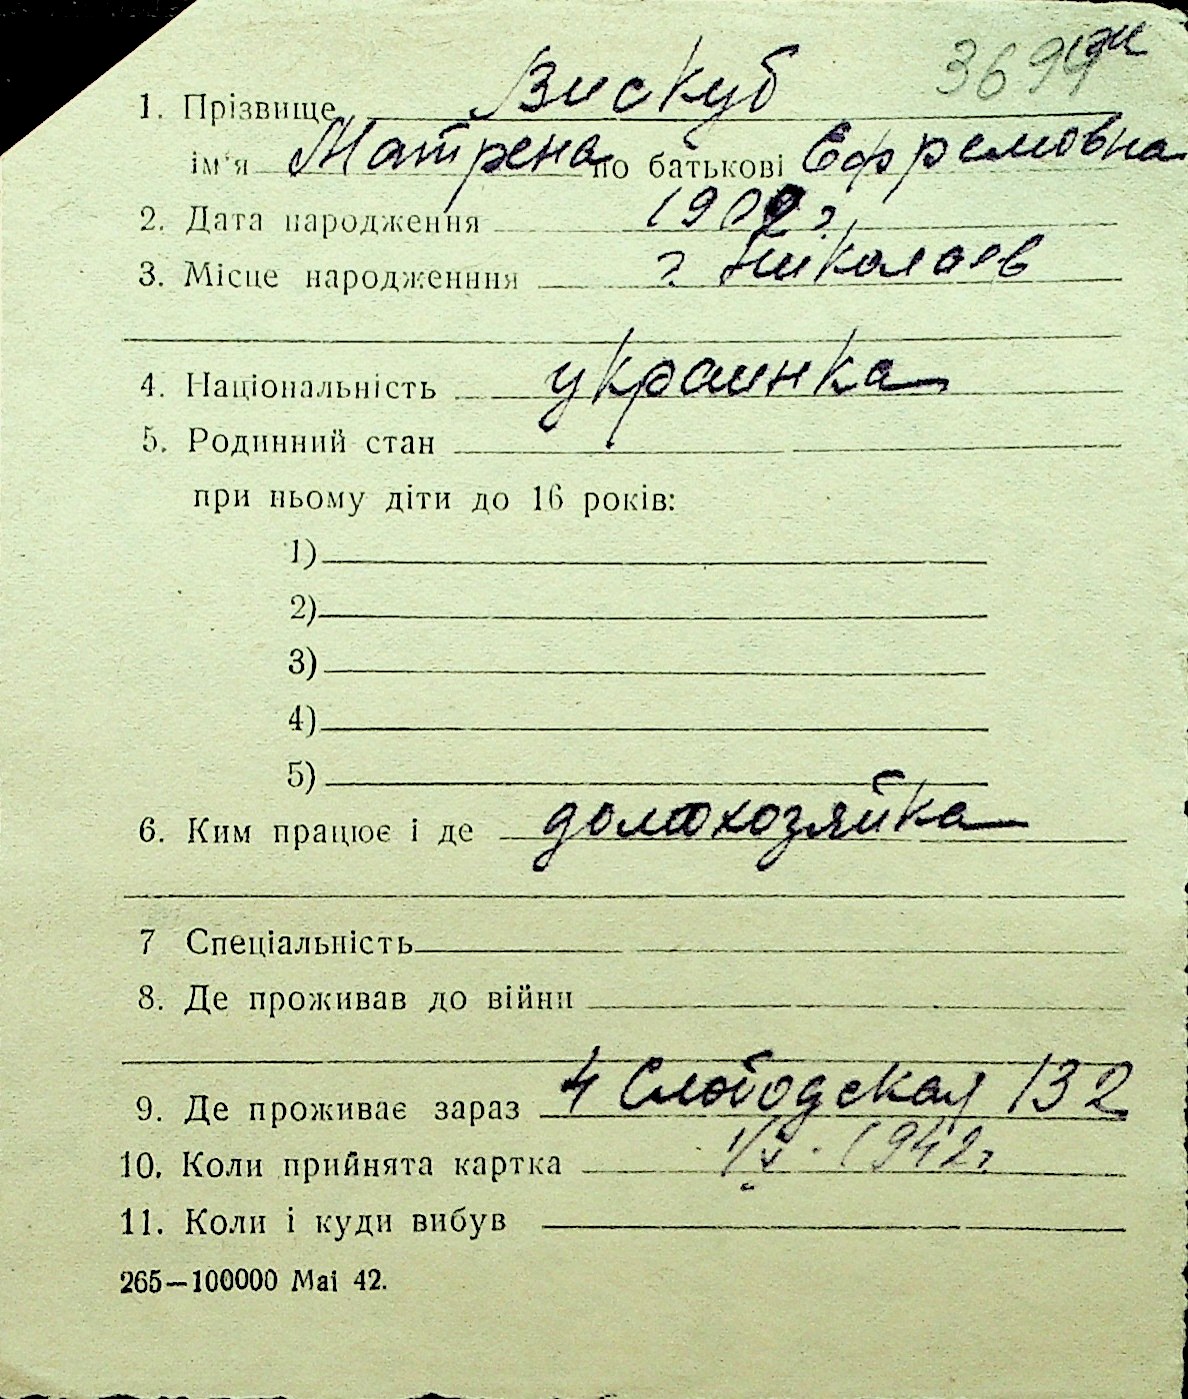 3694
1. Прізвище Вискуб
ім'я Матрена по батькові Ефремовна
2. Дата народження 1902 г.
3. Місце народженння г. Николаев
4. Національність украинка
5. Родинний стан
при ньому діти до 16 років:
1)
2)
3)
4)
5)
6. Ким працює і де домохозяйка
7 Спеціальність
8. Де проживав до війни
9. Де проживає зараз 4 Слободская 132
10. Коли прийнята картка 1/X. 1942 г.
11. Коли і куди вибув
265—100000 Mai 42.